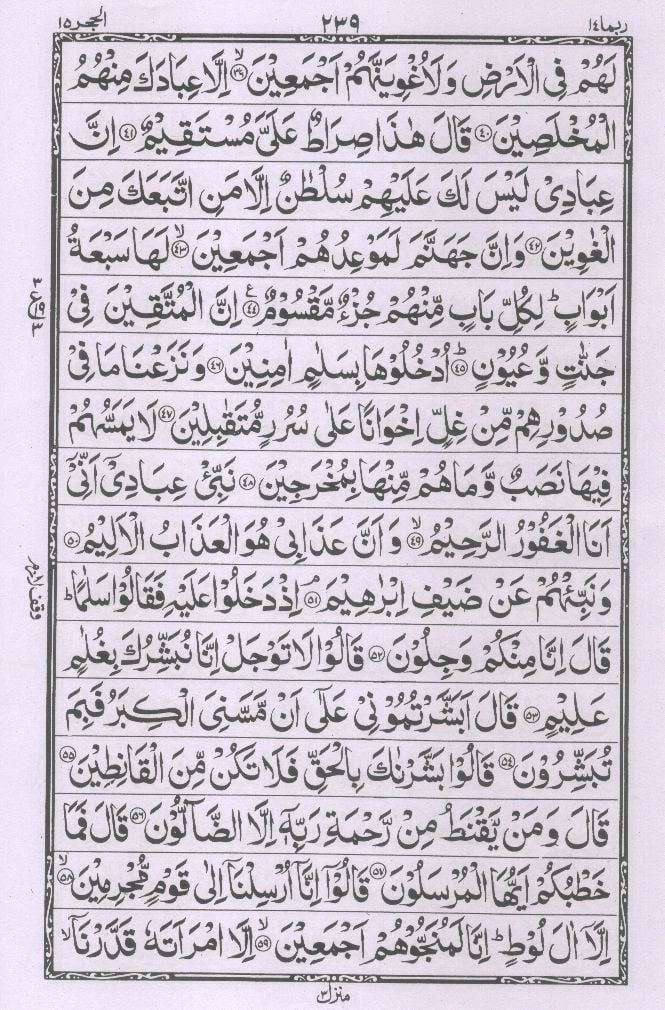 ربما ١٤ ٢٣٩ الحجر ١٥
لَهُمْ فِی الْاَرْضِ وَلَاُغْوِیَنَّهُمْ اَجْمَعِیْنَ ﴿٣٩﴾ۙ اِلَّا عِبَادَكَ مِنْهُمُ
الْمُخْلَصِیْنَ ﴿٤٠﴾ قَالَ هٰذَا صِرَاطٌ عَلَیَّ مُسْتَقِیْمٌ ﴿٤١﴾ اِنَّ
عِبَادِیْ لَیْسَ لَكَ عَلَیْهِمْ سُلْطٰنٌ اِلَّا مَنِ اتَّبَعَكَ مِنَ
الْغٰوِیْنَ ﴿٤٢﴾ وَاِنَّ جَهَنَّمَ لَمَوْعِدُهُمْ اَجْمَعِیْنَ ﴿٤٣﴾ۙ لَهَا سَبْعَةُ
اَبْوَابٍ ؕ لِكُلِّ بَابٍ مِّنْهُمْ جُزْءٌ مَّقْسُوْمٌ ﴿٤٤﴾ۧ اِنَّ الْمُتَّقِیْنَ فِیْ
جَنّٰتٍ وَّعُیُوْنٍ ﴿٤٥﴾ؕ اُدْخُلُوْهَا بِسَلٰمٍ اٰمِنِیْنَ ﴿٤٦﴾ وَنَزَعْنَا مَا فِیْ
صُدُوْرِهِمْ مِّنْ غِلٍّ اِخْوَانًا عَلٰی سُرُرٍ مُّتَقٰبِلِیْنَ ﴿٤٧﴾ لَا یَمَسُّهُمْ
فِیْهَا نَصَبٌ وَّمَا هُمْ مِّنْهَا بِمُخْرَجِیْنَ ﴿٤٨﴾ نَبِّئْ عِبَادِیْۤ اَنِّیْۤ
اَنَا الْغَفُوْرُ الرَّحِیْمُ ﴿٤٩﴾ۙ وَاَنَّ عَذَابِیْ هُوَ الْعَذَابُ الْاَلِیْمُ ﴿٥٠﴾
وَنَبِّئْهُمْ عَنْ ضَیْفِ اِبْرٰهِیْمَ ﴿٥١﴾ۘ اِذْ دَخَلُوْا عَلَیْهِ فَقَالُوْا سَلٰمًا ؕ
قَالَ اِنَّا مِنْكُمْ وَجِلُوْنَ ﴿٥٢﴾ قَالُوْا لَا تَوْجَلْ اِنَّا نُبَشِّرُكَ بِغُلٰمٍ
عَلِیْمٍ ﴿٥٣﴾ قَالَ اَبَشَّرْتُمُوْنِیْ عَلٰۤی اَنْ مَّسَّنِیَ الْكِبَرُ فَبِمَ
تُبَشِّرُوْنَ ﴿٥٤﴾ قَالُوْا بَشَّرْنٰكَ بِالْحَقِّ فَلَا تَكُنْ مِّنَ الْقَانِطِیْنَ ﴿٥٥﴾
قَالَ وَمَنْ یَّقْنَطُ مِنْ رَّحْمَةِ رَبِّهٖۤ اِلَّا الضَّآلُّوْنَ ﴿٥٦﴾ قَالَ فَمَا
خَطْبُكُمْ اَیُّهَا الْمُرْسَلُوْنَ ﴿٥٧﴾ قَالُوْۤا اِنَّاۤ اُرْسِلْنَاۤ اِلٰی قَوْمٍ مُّجْرِمِیْنَ ﴿٥٨﴾ۙ
اِلَّاۤ اٰلَ لُوْطٍ ؕ اِنَّا لَمُنَجُّوْهُمْ اَجْمَعِیْنَ ﴿٥٩﴾ۙ اِلَّا امْرَاَتَهٗ قَدَّرْنَاۤ ۙ
منزل ٣